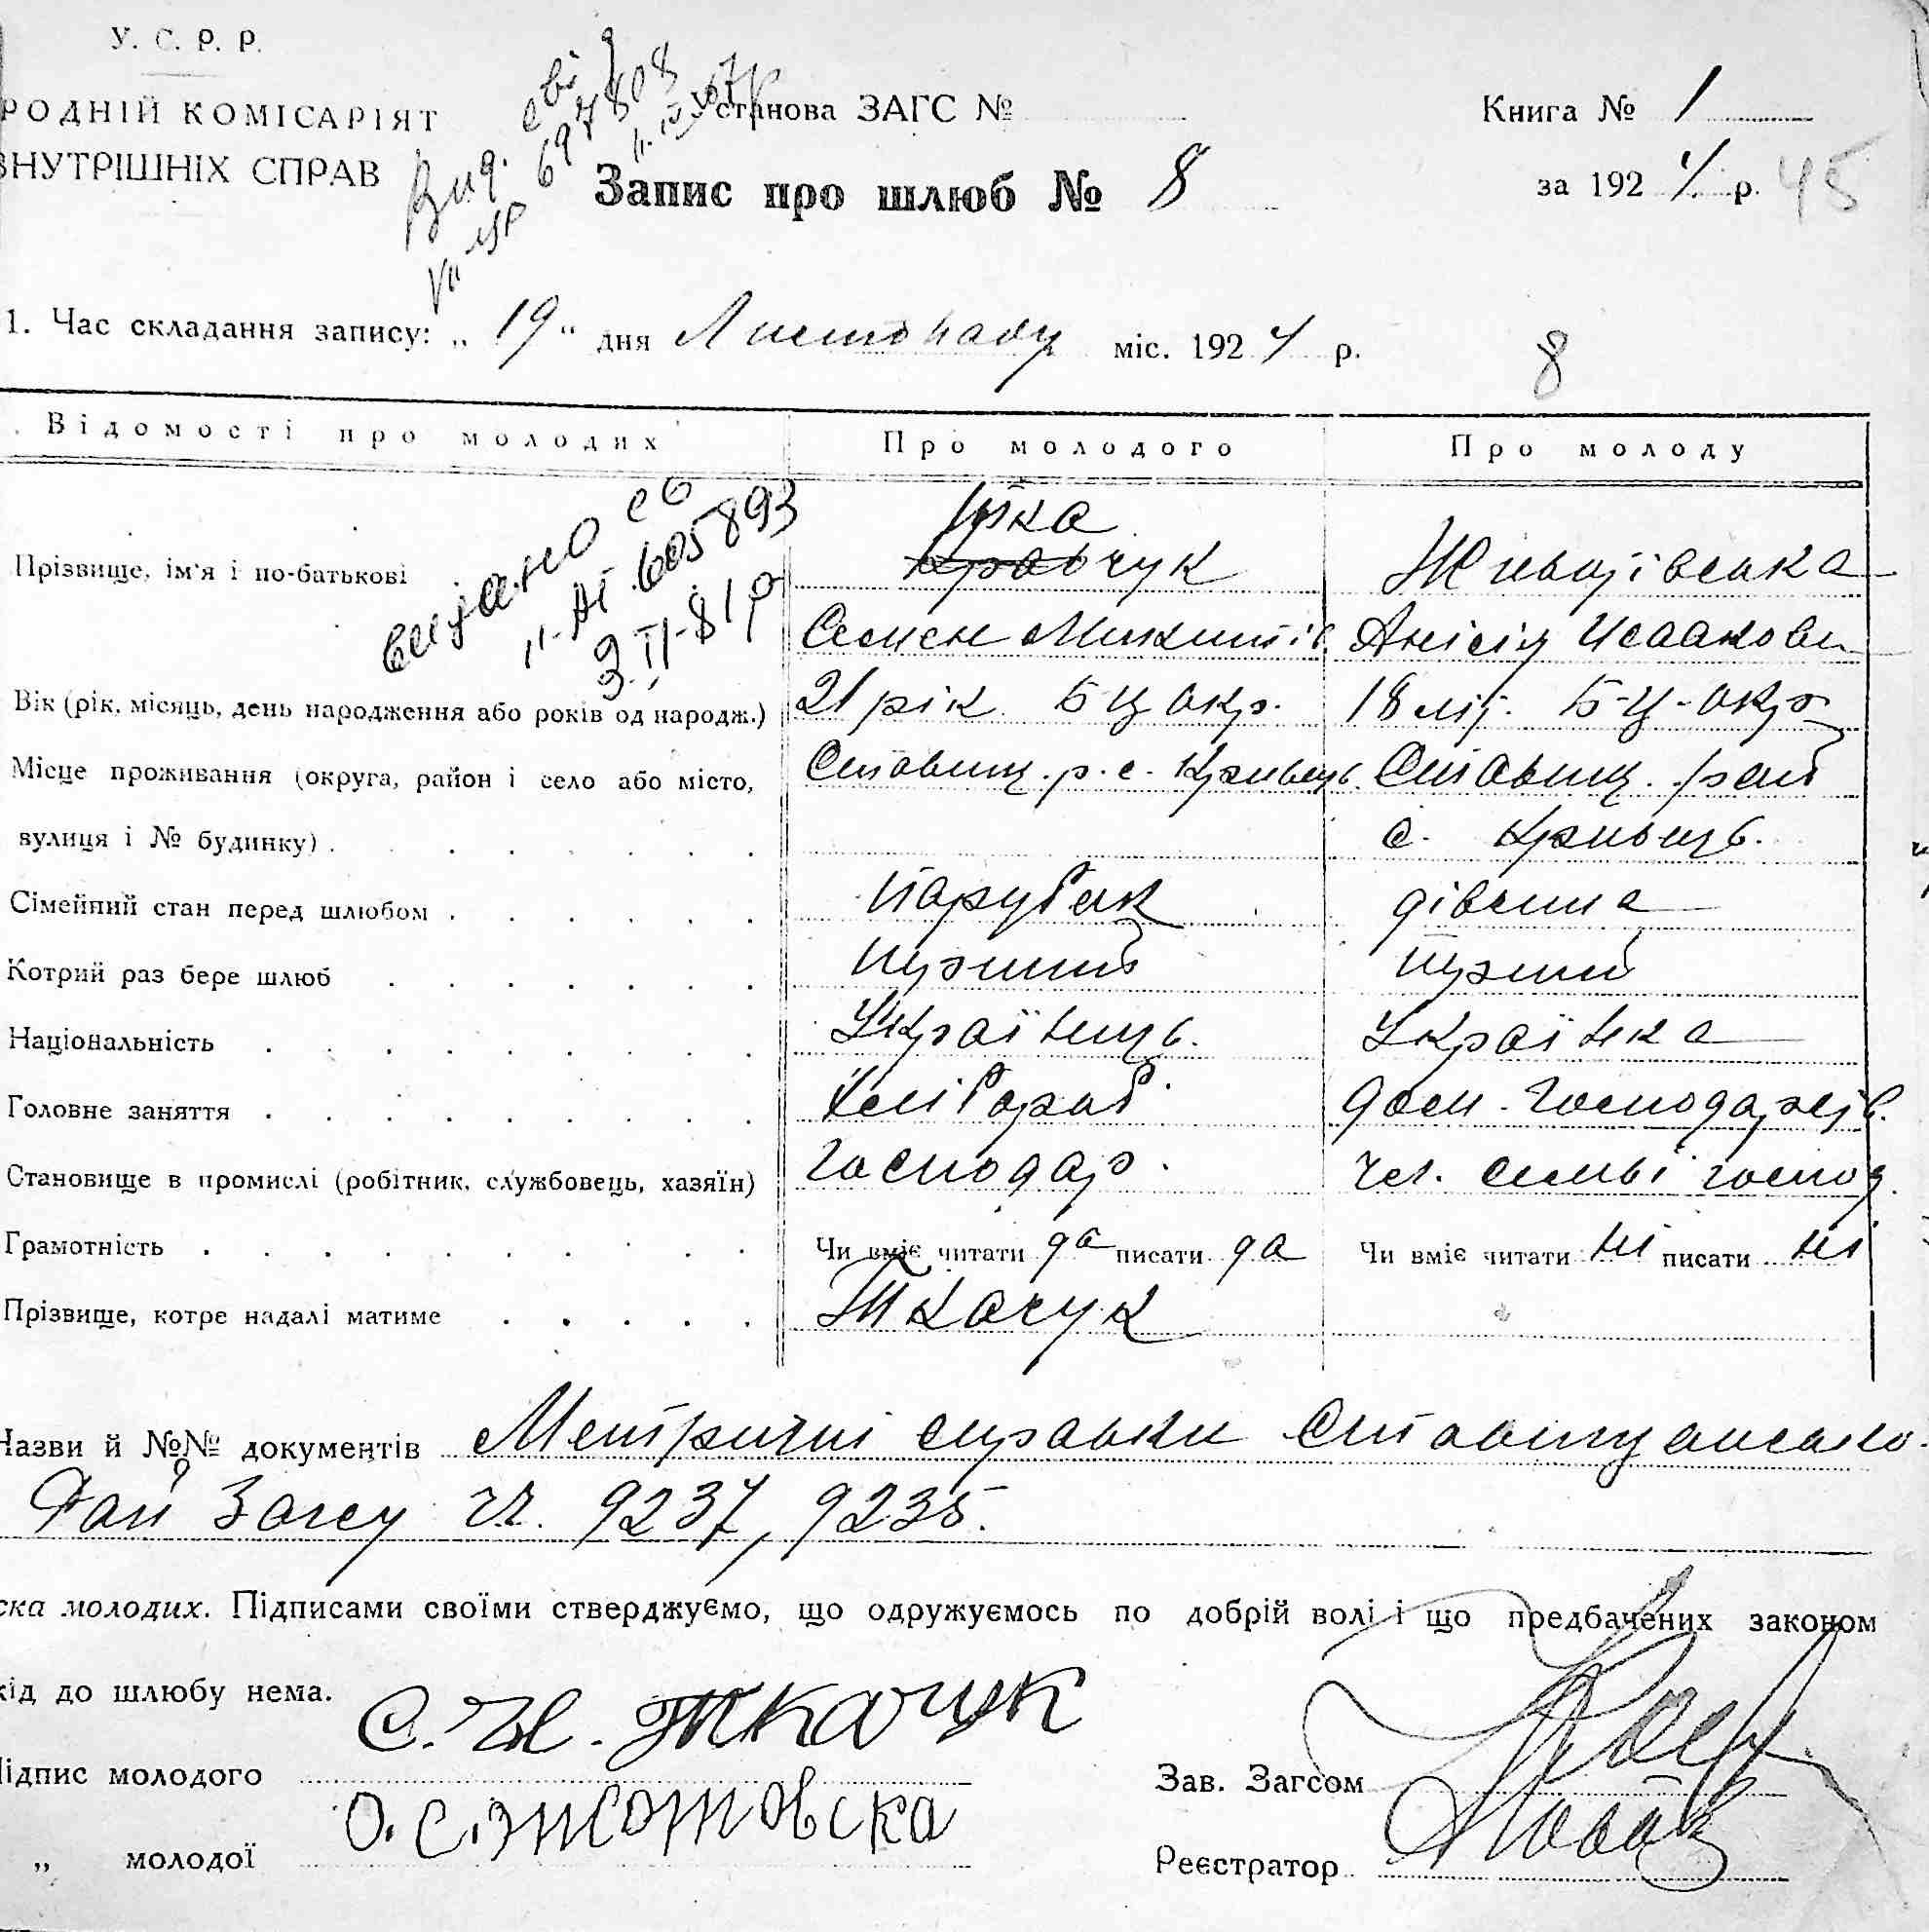 У. С. Р. Р.
РОДНІЙ КОМІСАРІЯТ
ВНУТРІШНІХ СПРАВ
Вид. сві
697808
Установа ЗАГС №
Книга № 1
Запис про шлюб № 8
за 1924 р. 45
1. Час складання запису: „19“ дня Листопаду міс. 1924 р.
8
Відомості про молодих
Про молодого
Про молоду
видано св
605893
3.II-81р
Тка
Прізвище, ім'я і по-батькові
Кравчук
Семен Микитів. Анісія Исаакова
Вік (рік, місяць, день народження або років од народж.) 21 рік Б Ц окр. 18 літ. Б-Ц-окр
Місце проживання (округа, район і село або місто, Ставищ. р. с. Кривець. Ставищ. рай
вулиця і № будинку) . с. Кривець.
Сімейний стан перед шлюбом . Парубок дівчина
Котрий раз бере шлюб перший перший
Національність Українець. Українка
Головне заняття Хлібороб дом. господарств.
Становище в промислі (робітник, службовець, хазяїн) господар. чл. семьі господ.
Грамотність Чи вміє читати да писати да Чи вміє читати ні писати ні
Прізвище, котре надалі матиме Ткачук
Назви й №№ документів Метричні справки Ставищанско.
Рай Загсу чч. 9237, 9235.
ска молодих. Підписами своїми стверджуємо, що одружуємось по добрій волі і що предбачених законом
кід до шлюбу нема.
Підпис молодого С. М. Ткачук
Зав. Загсом
„ молодої
Реєстратор